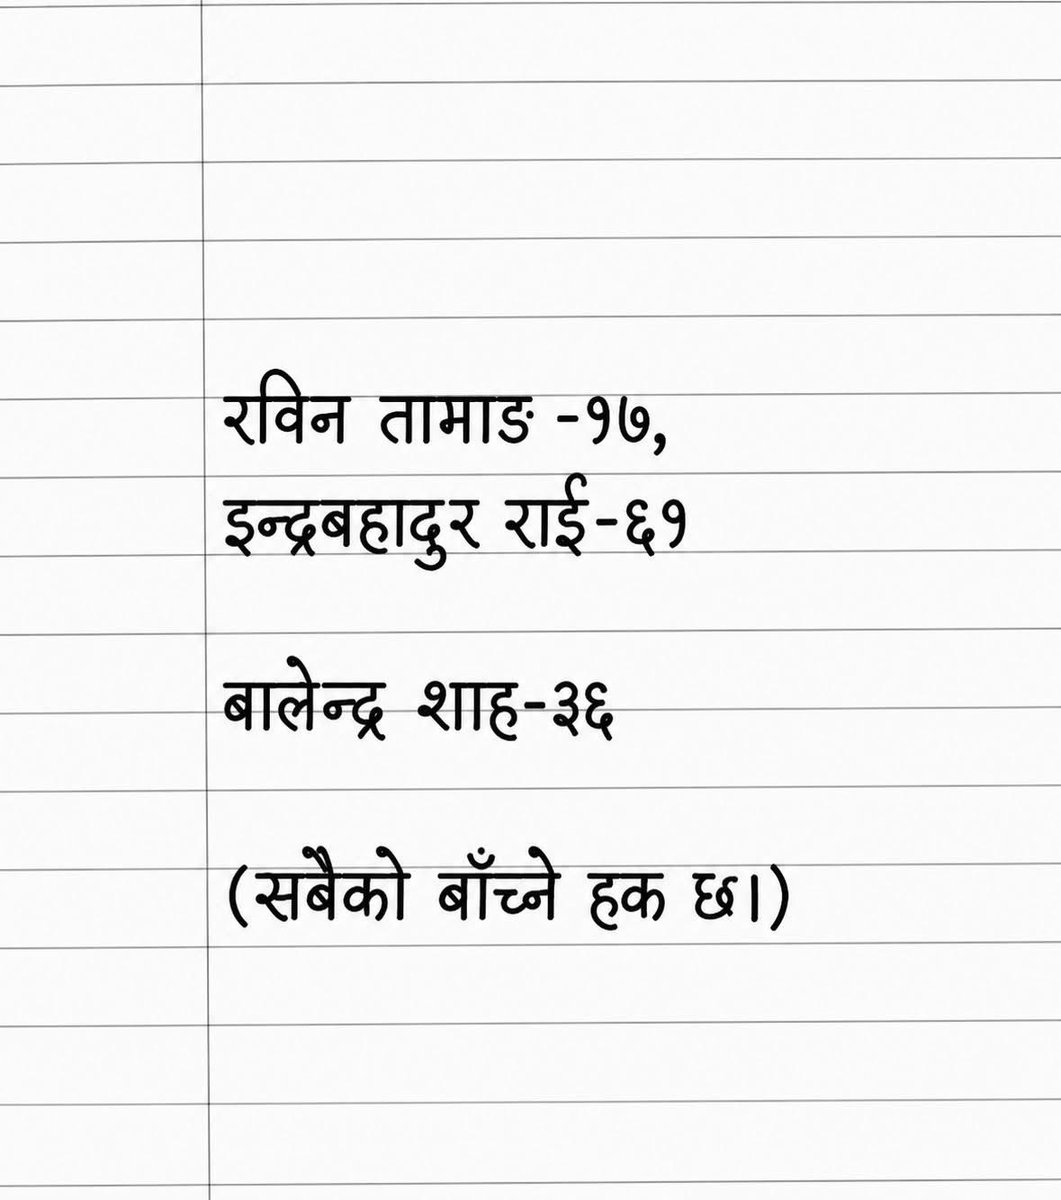 रविन तामाङ -१७,
इन्द्रबहादुर राई-६१
बालेन्द्र शाह-३६
(सबैको बाँच्ने हक छ।)